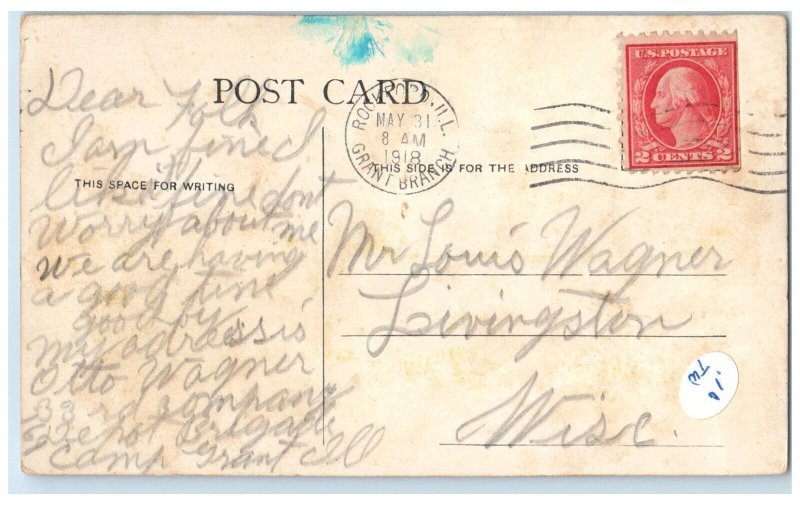 POST CARD
ROCKFORD, ILL.
MAY 31
8 AM
1918
GRANT BRANCH
U.S. POSTAGE
2 CENTS 2
THIS SPACE FOR WRITING
THIS SIDE IS FOR THE ADDRESS
Dear Folk
I am fine I
like it fine dont
worry about me
we are having
a good time
good by
my adrass is
Otto Wagner
33 rd company
Depot Brigade
Camp Grant Ill
Mr Louis Wagner
Livingston
Wisc.